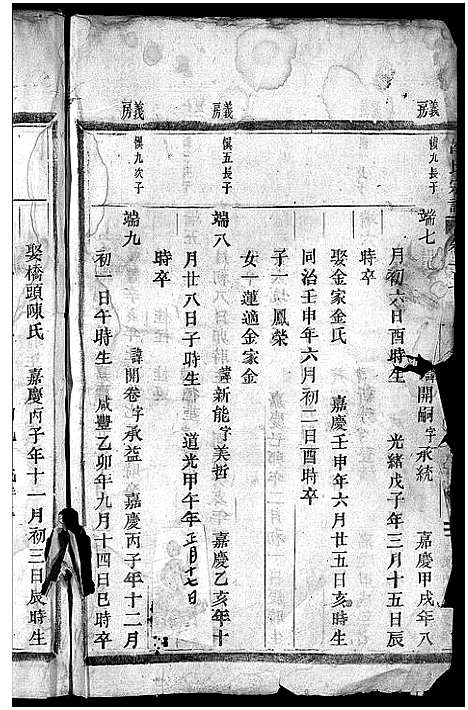 義房
慎九長子
端七
諱開嗣字承統 嘉慶甲戌年八
月初六日酉時生 光緒戊子年三月十五日辰
時卒
娶金家金氏 嘉慶壬申年六月廿五日亥時生
同治壬申年六月初二日酉時卒
子一 鳳榮
女一 蓮適金家金
義房
慎五長子
端八 諱新能字美哲 嘉慶乙亥年十
月廿八日子時生 道光甲午年正月十七日
時卒
義房
慎九次子
端九 諱開卷字承益 嘉慶丙子年十二月
初一日午時生 咸豐乙卯年九月十四日巳時卒
娶橋頭陳氏 嘉慶丙子年十一月初三日辰時生